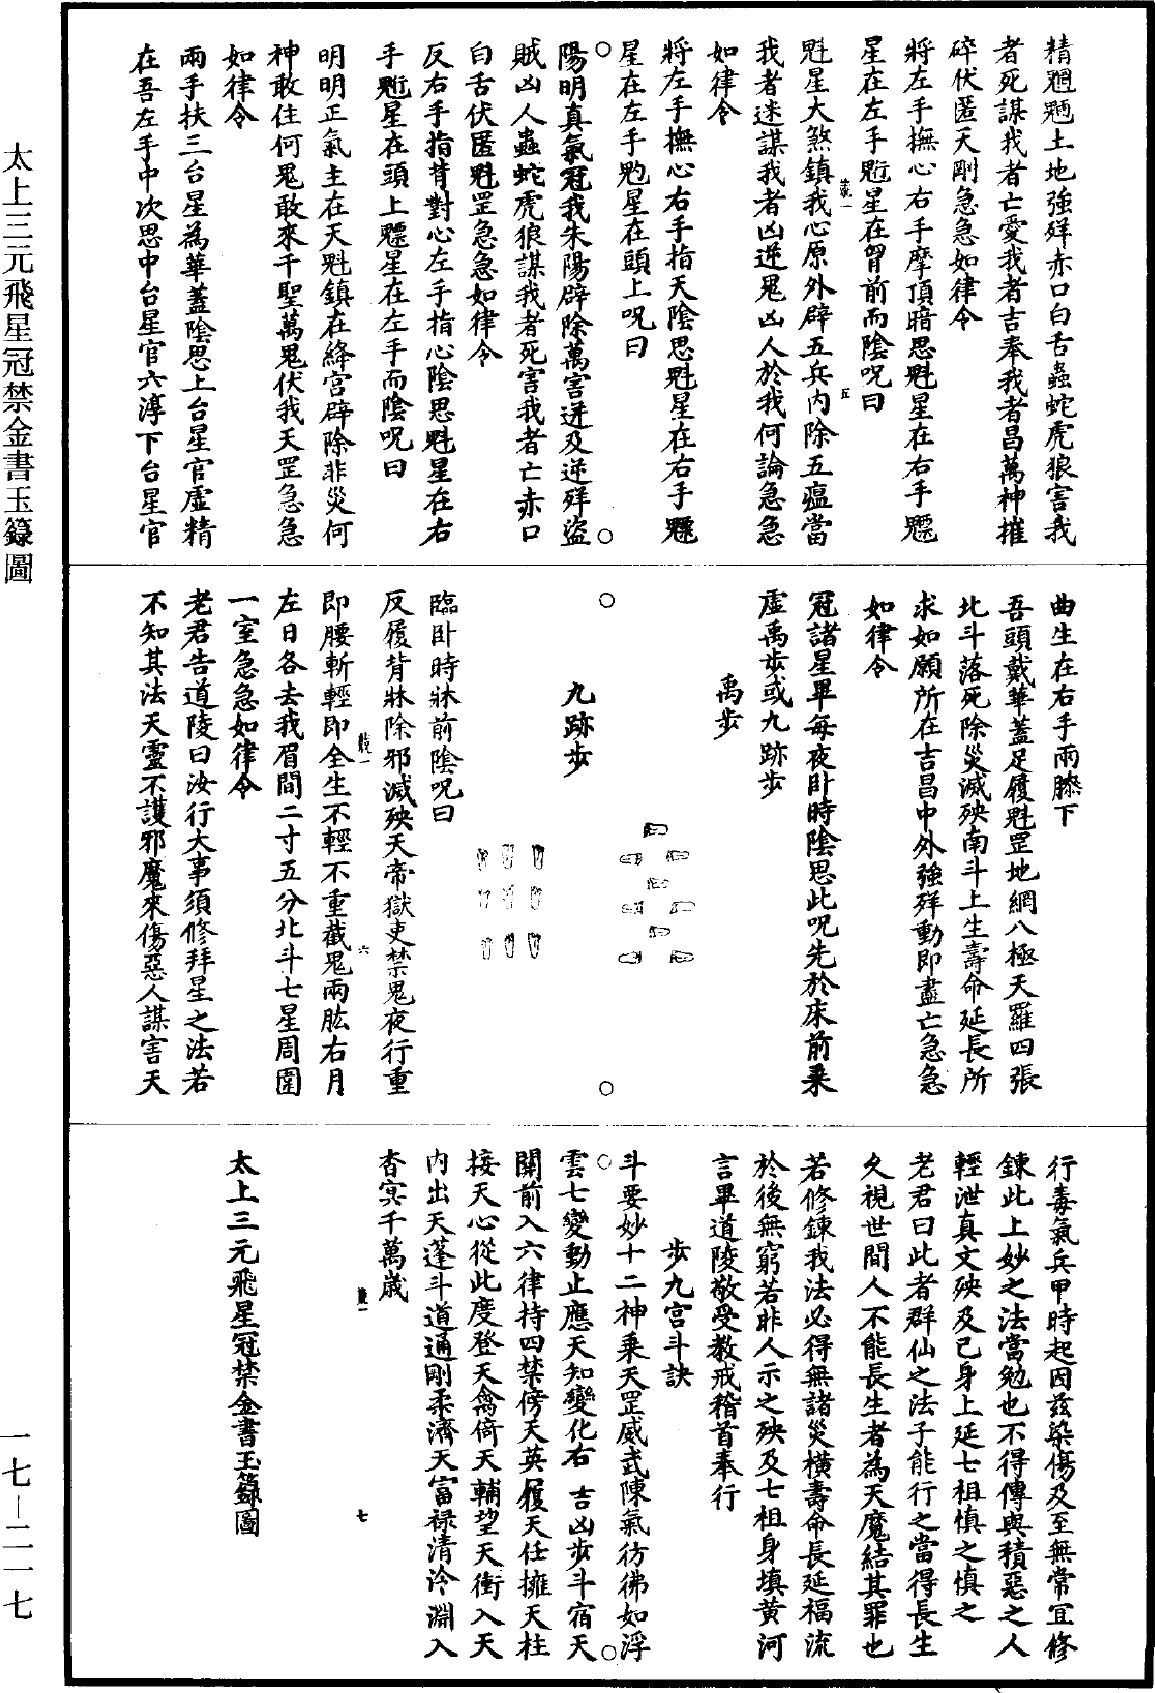 精魍魎土地強殃赤口白舌蟲蛇虎狼害我
者死謀我者亡愛我者吉奉我者昌萬神摧
碎伏匿天剛急急如律令
將左手撫心右手摩頂暗思魁星在右手魒
星在左手䰢星在胷前而陰呪曰
魁星大煞鎮我心原外辟五兵內除五瘟當
我者迷謀我者凶逆鬼凶人於我何論急急
如律令
將左手撫心右手指天陰思魁星在右手魒
星在左手魡星在頭上呪曰
陽明真氣冠我朱陽辟除萬害迸及逆殃盜
賊凶人蟲蛇虎狼謀我者死害我者亡赤口
白舌伏匿魁罡急急如律令
反右手指背對心左手指心陰思魁星在右
手䰢星在頭上魒星在左手而陰呪曰
明明正氣主在天魁鎮在絳宮辟除非災何
神敢住何鬼敢來千聖萬鬼伏我天罡急急
如律令
兩手扶三台星為華蓋陰思上台星官虛精
在吾左手中次思中台星官六淳下台星官
曲生在右手兩膝下
吾頭戴華蓋足履魁罡地網八極天羅四張
北斗落死除災滅殃南斗上生壽命延長所
求如願所在吉昌中外強殃動即盡亡急急
如律令
冠諸星畢每夜卧時陰思此呪先於床前乘
虛禹步或九跡步
禹步
九跡步
臨卧時牀前陰呪曰
反履背牀除邪滅殃天帝獄吏禁鬼夜行重
即腰斬輕即全生不輕不重截鬼兩肱右月
左日各去我眉間二寸五分北斗七星周圍
一室急急如律令
老君告道陵曰汝行大事須修拜星之法若
不知其法天靈不護邪魔來傷惡人謀害天
行毒氣兵甲時起因茲染傷及至無常宜修
鍊此上妙之法當勉也不得傳與積惡之人
輕泄真文殃及己身上延七祖慎之慎之
老君曰此者群仙之法子能行之當得長生
久視世間人不能長生者為天魔結其罪也
若修鍊我法必得無諸災橫壽命長延福流
於後無窮若非人示之殃及七祖身填黃河
言畢道陵敬受教戒稽首奉行
步九宮斗訣
斗要妙十二神乘天罡威武陳氣彷彿如浮
雲七變動止應天知變化右 吉凶步斗宿天
關前入六律持四禁傍天英履天任擁天柱
接天心從此度登天禽倚天輔望天衝入天
內出天蓬斗道通剛柔濟天富祿清泠淵入
杳冥千萬歲
太上三元飛星冠禁金書玉籙圖
太上三元飛星冠禁金書玉籙圖
一七—二一七
五
六
七